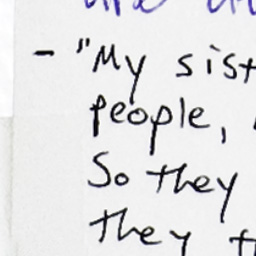 - "My sist
people,
So they
they t